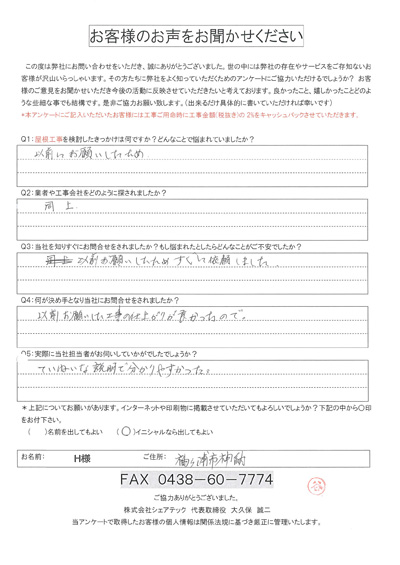 お客様のお声をお聞かせください
この度は弊社にお問い合わせをいただき、誠にありがとうございました。世の中には弊社の存在やサービスをご存知ないお
客様が沢山いらっしゃいます。その方たちに弊社をよく知っていただくためのアンケートにご協力いただけるでしょうか？ お客
様のご意見をお聞かせいただき今後の活動に反映させていただきたいと考えております。良かったこと、嬉しかったことどのよ
うな些細な事でも結構です。是非ご協力お願い致します。（出来るだけ具体的に書いていただければ幸いです）
*本アンケートにご記入いただいたお客様には工事ご用命時に工事金額(税抜き)の 2%をキャッシュバックさせていただきます。
Q1:屋根工事を検討したきっかけは何ですか？どんなことで悩まれていましたか？
以前にお願いしたため
Q2:業者や工事会社をどのように探されましたか？
同上
Q3:当社を知りすぐにお問合せをされましたか？もし悩まれたとしたらどんなことがご不安でしたか？
以前お願いしたためすぐに依頼しました
Q4:何が決め手となり当社にお問合せをされましたか？
以前お願いした工事の仕上がりが良かったので。
Q5:実際に当社担当者がお伺いしていかがでしたでしょうか？
ていねいな説明で分かりやすかった。
＊上記についてお願いがあります。インターネットや印刷物に掲載させていただいてもよろしいでしょうか？下記の中から〇印
をお付下さい。
（　）名前を出してもよい　（〇）イニシャルなら出してもよい
お名前: H様 ご住所: 袖ヶ浦市
FAX 0438-60-7774
ご協力ありがとうございました。
株式会社シェアテック 代表取締役 大久保 誠二
当アンケートで取得したお客様の個人情報は関係法規に基づき厳正に管理いたします。